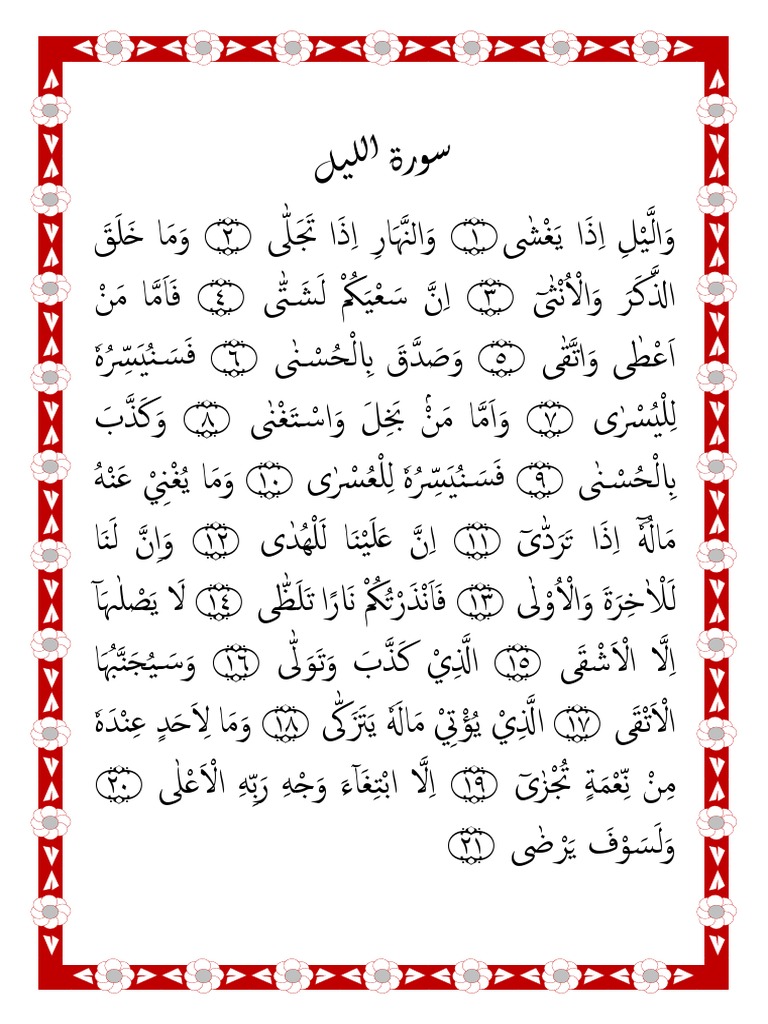 سورة الليل
وَالَّيْلِ اِذَا يَغْشٰى ۝١ وَالنَّهَارِ اِذَا تَجَلّٰى ۝٢ وَمَا خَلَقَ
الذَّكَرَ وَالْاُنْثٰىٓ ۝٣ اِنَّ سَعْيَكُمْ لَشَتّٰى ۝٤ فَاَمَّا مَنْ
اَعْطٰى وَاتَّقٰى ۝٥ وَصَدَّقَ بِالْحُسْنٰى ۝٦ فَسَنُيَسِّرُهٗ
لِلْيُسْرٰى ۝٧ وَاَمَّا مَنْۢ بَخِلَ وَاسْتَغْنٰى ۝٨ وَكَذَّبَ
بِالْحُسْنٰى ۝٩ فَسَنُيَسِّرُهٗ لِلْعُسْرٰى ۝١٠ وَمَا يُغْنِيْ عَنْهُ
مَالُهٗٓ اِذَا تَرَدّٰىٓ ۝١١ اِنَّ عَلَيْنَا لَلْهُدٰى ۝١٢ وَاِنَّ لَنَا
لَلْاٰخِرَةَ وَالْاُوْلٰى ۝١٣ فَاَنْذَرْتُكُمْ نَارًا تَلَظّٰى ۝١٤ لَا يَصْلٰىهَآ
اِلَّا الْاَشْقَى ۝١٥ الَّذِيْ كَذَّبَ وَتَوَلّٰى ۝١٦ وَسَيُجَنَّبُهَا
الْاَتْقَى ۝١٧ الَّذِيْ يُؤْتِيْ مَالَهٗ يَتَزَكّٰى ۝١٨ وَمَا لِاَحَدٍ عِنْدَهٗ
مِنْ نِّعْمَةٍ تُجْزٰىٓ ۝١٩ اِلَّا ابْتِغَآءَ وَجْهِ رَبِّهِ الْاَعْلٰى ۝٢٠
وَلَسَوْفَ يَرْضٰى ۝٢١